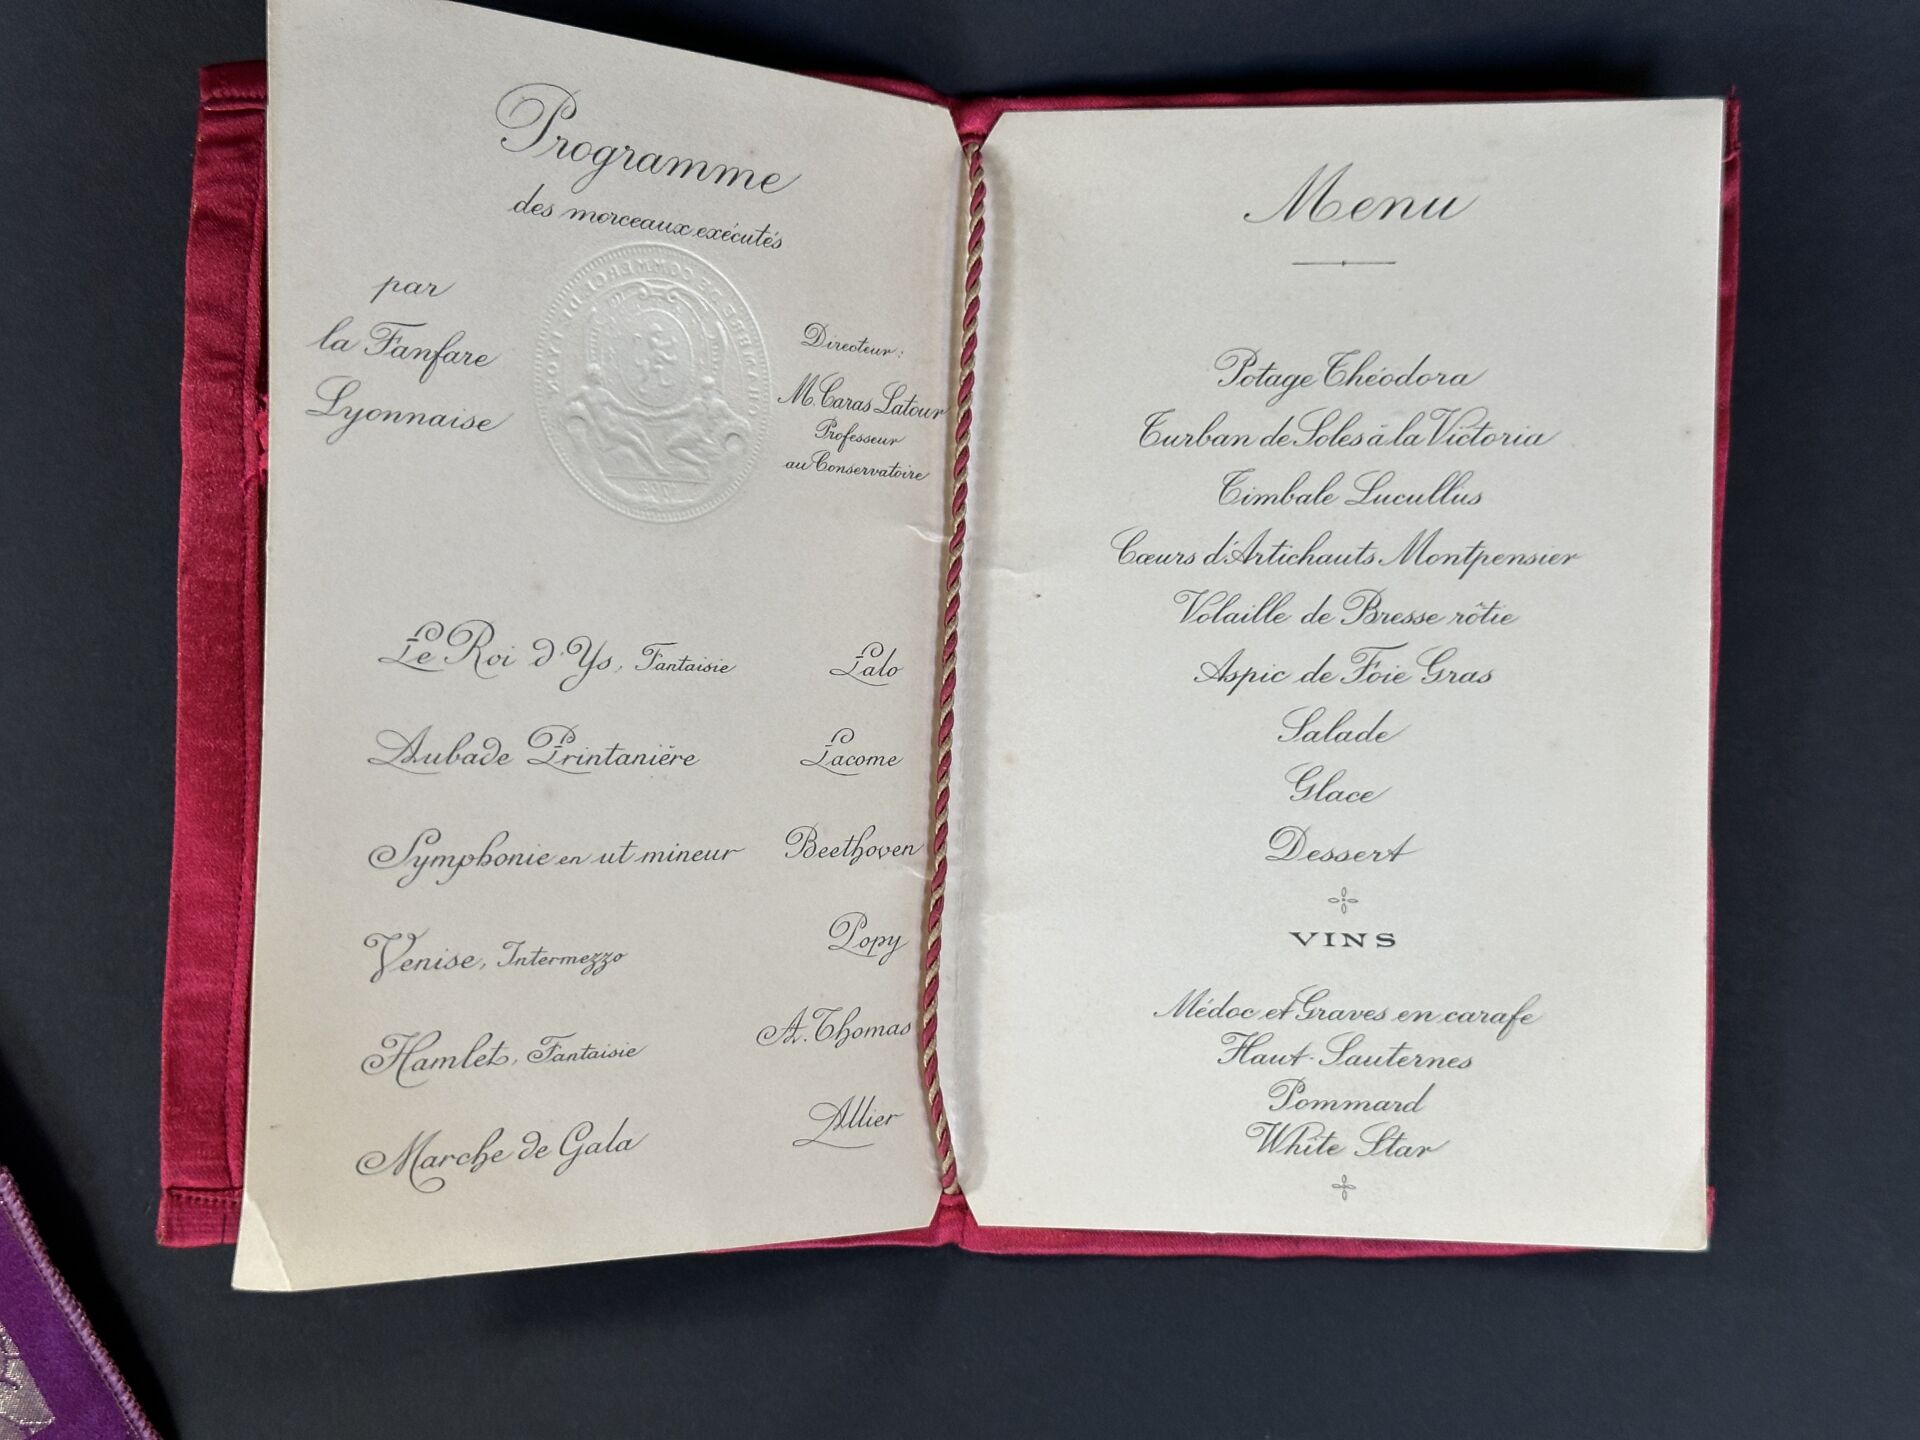 Programme
des morceaux exécutés
par
la Fanfare
Lyonnaise
CHAMBRE DE COMMERCE DE LYON
1702
Directeur:
M. Caras Latour
Professeur
au Conservatoire
Le Roi d'Ys, Fantaisie Lalo
Aubade Printanière Lacome
Symphonie en ut mineur Beethoven
Venise, Intermezzo Popy
Hamlet, Fantaisie A. Thomas
Marche de Gala Allier
Menu
Potage Théodora
Turban de Soles à la Victoria
Timbale Lucullus
Cœurs d'Artichauts Montpensier
Volaille de Bresse rôtie
Aspic de Foie Gras
Salade
Glace
Dessert
VINS
Médoc et Graves en carafe
Haut-Sauternes
Pommard
White Star